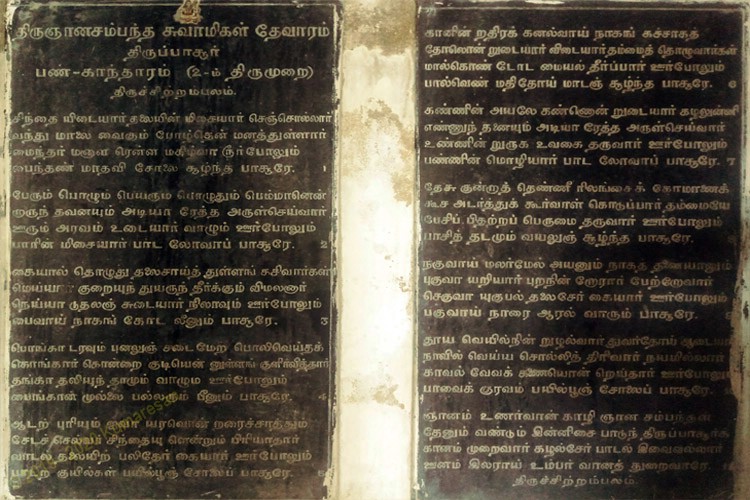 திருஞானசம்பந்த சுவாமிகள் தேவாரம்
திருப்பாசூர்
பண்-காந்தாரம் (2-ம் திருமுறை)
திருச்சிற்றம்பலம்.
சிந்தை யிடையார் தலையின் மிசையார் செஞ்சொல்லார்
வந்து மாலை வைகும் போழ்தென் மனத்துள்ளார்
மைந்தர் மணாள ரென்ன மகிழ்வா ரூர்போலும்
பைந்தண் மாதவி சோலை சூழ்ந்த பாசூரே. 1
பேரும் பொழுதும் பெயரும் பொழுதும் பெம்மானென்
றாருந் தனையும் அடியா ரேத்த அருள்செய்வார்
ஊரும் அரவம் உடையார் வாழும் ஊர்போலும்
பாரின் மிசையார் பாட லோவாப் பாசூரே. 2
கையால் தொழுது தலைசாய்த் துள்ளங் கசிவார்கள்
மெய்யார் குறையுந் துயருந் தீர்க்கும் விமலனார்
நெய்யா டுதலஞ் சுடையார் நிலாவும் ஊர்போலும்
பைவாய் நாகங் கோட லீனும் பாசூரே. 3
பொங்கா டரவும் புனலுஞ் சடைமேற் பொலிவெய்தக்
கொங்கார் கொன்றை சூடியென் னுள்ளங் குளிர்வித்தார்
தங்கா தலியுந் தாமும் வாழும் ஊர்போலும்
பைங்கான் முல்லை பல்லரும் பீனும் பாசூரே. 4
ஆடற் புரியும் ஐவா யரவொன் றரைச்சாத்தும்
சேடச் செல்வர் சிந்தையு ளென்றும் பிரியாதார்
வாடல் தலையிற் பலிதேர் கையார் ஊர்போலும்
பாடற் குயில்கள் பயில்பூஞ் சோலைப் பாசூரே. 5
கானின் றதிரக் கனல்வாய் நாகங் கச்சாகத்
தோலொன் றுடையார் விடையார் தம்மைத் தொழுவார்கள்
மால்கொண் டோட மையல் தீர்ப்பார் ஊர்போலும்
பால்வெண் மதிதோய் மாடஞ் சூழ்ந்த பாசூரே. 6
கண்ணின் அயலே கண்ணொன் றுடையார் கழலுன்னி
எண்ணுந் தனையும் அடியா ரேத்த அருள்செய்வார்
உண்ணின் றுருக உவகை தருவார் ஊர்போலும்
பண்ணின் மொழியார் பாட லோவாப் பாசூரே. 7
தேசு குன்றாத் தெண்ணீ ரிலங்கைக் கோமானைக்
கூச அடர்த்துக் கூர்வாள் கொடுப்பார் தம்மையே
பேசிப் பிதற்றப் பெருமை தருவார் ஊர்போலும்
பாசித் தடமும் வயலுஞ் சூழ்ந்த பாசூரே. 8
நகுவாய் மலர்மேல் அயனும் நாகத் தணையானும்
புகுவா யறியார் புறநின் றோரார் போற்றோவார்
செகுவா யுகுபல் தலைசேர் கையார் ஊர்போலும்
பகுவாய் நாரை ஆரல் வாரும் பாசூரே. 9
தூய வெயில்நின் றுழல்வார் துவர்தோய் ஆடையர்
நாவில் வெய்ய சொல்லித் திரிவார் நயமில்லார்
காவல் வேவக் கணையொன் றெய்தார் ஊர்போலும்
பாவைக் குரவம் பயில்பூஞ் சோலைப் பாசூரே.
ஞானம் உணர்வான் காழி ஞான சம்பந்தன்
தேனும் வண்டும் இன்னிசை பாடுந் திருப்பாசூர்க்
கானம் முறைவார் கழல்சேர் பாடல் இவைவல்லார்
ஊனம் இலராய் உம்பர் வானத் துறைவாரே.
திருச்சிற்றம்பலம்.